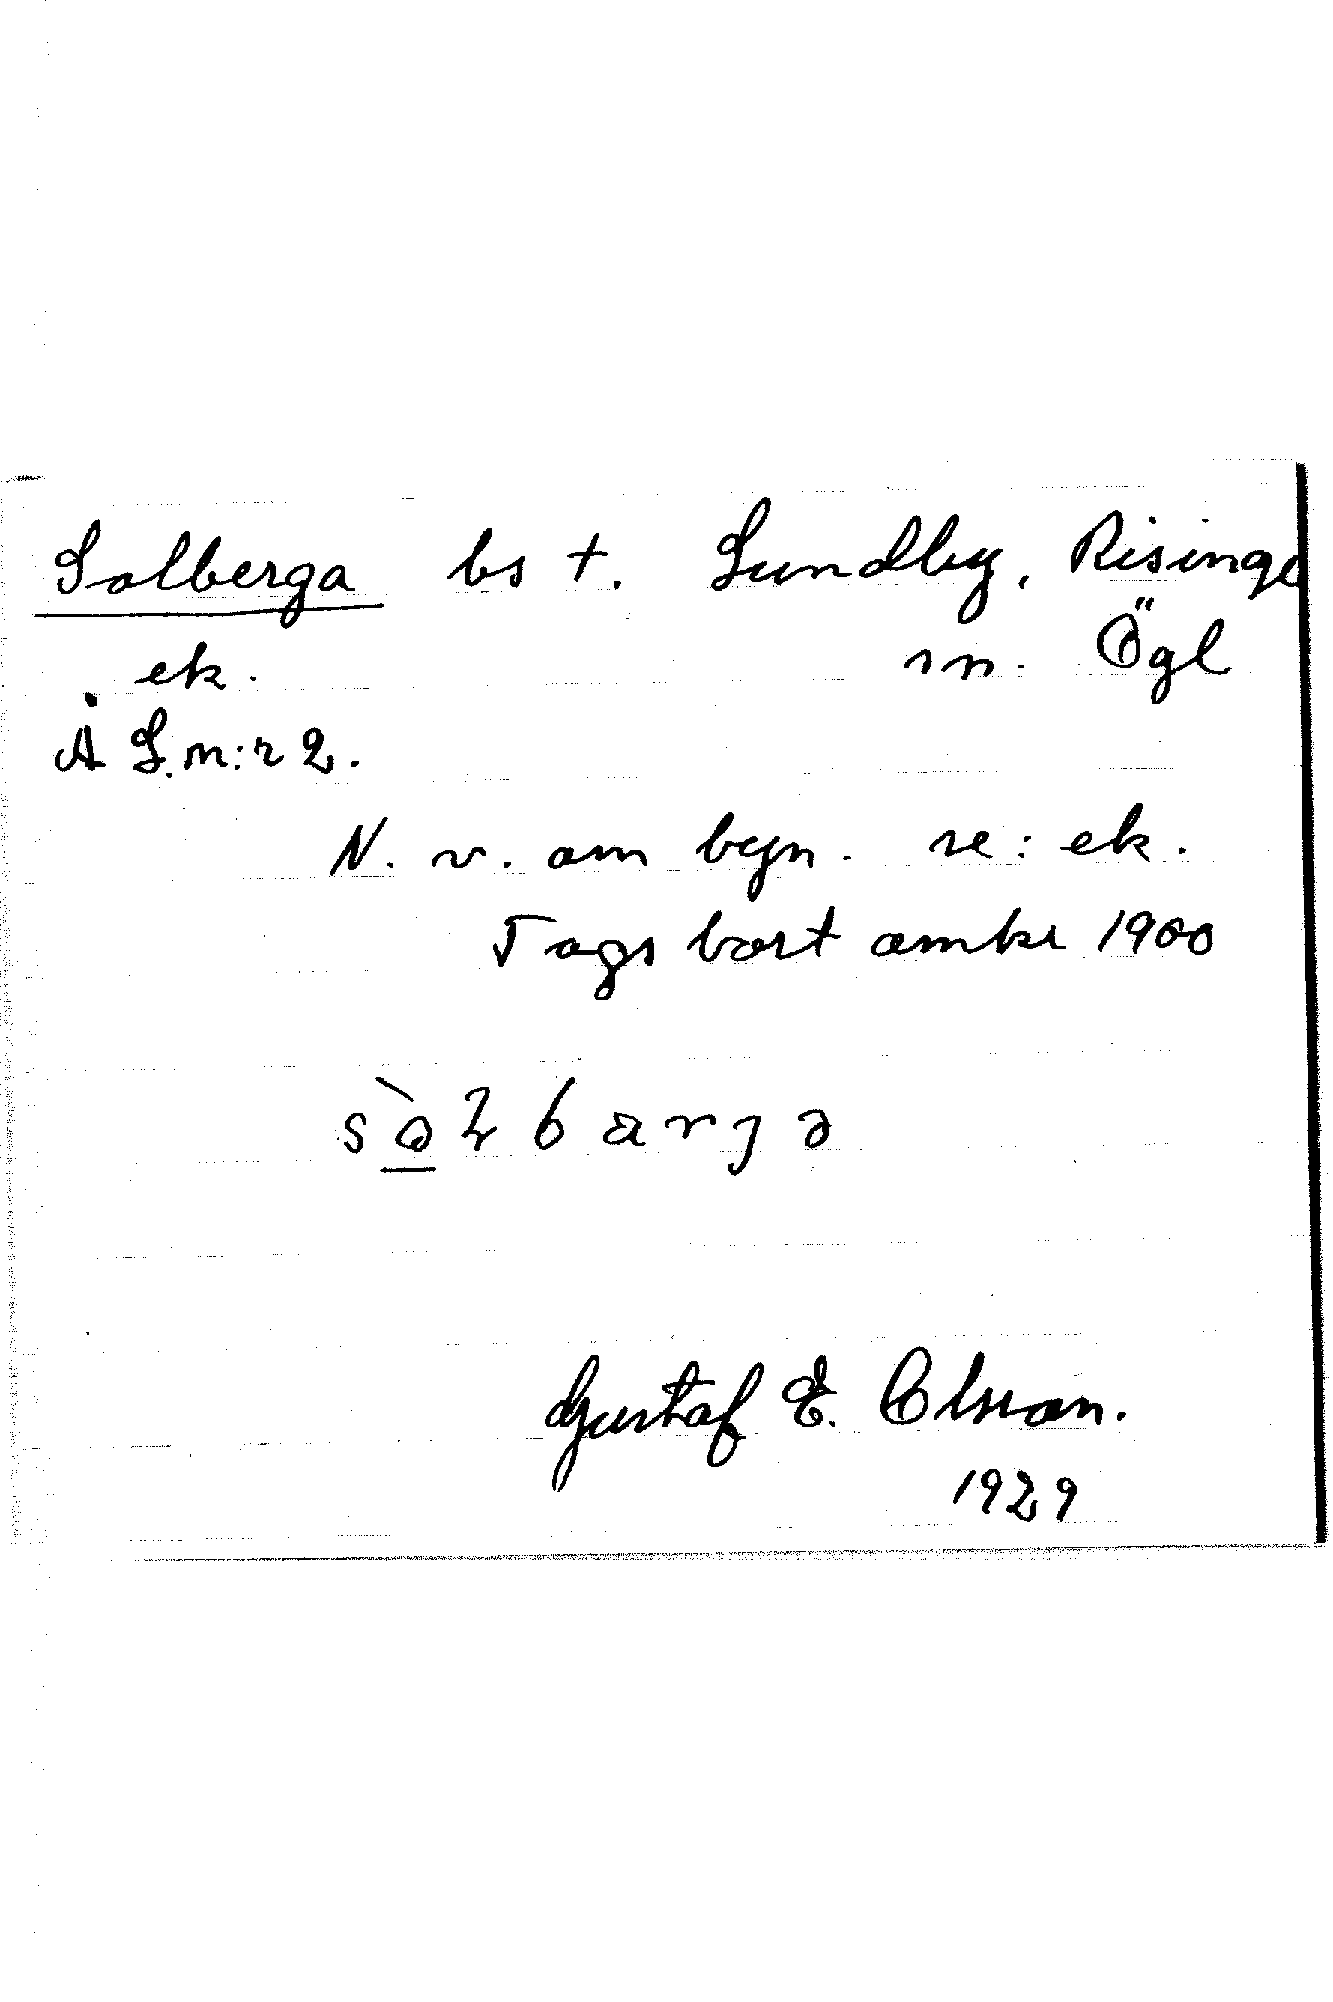 Solberga bs †. Lundby, Risinge
ek. sn. Ögl
Å L.n:r 2.
N. v. om byn. se: ek.
Togs bort omkr 1900
Gustaf E. Olsson.
1929